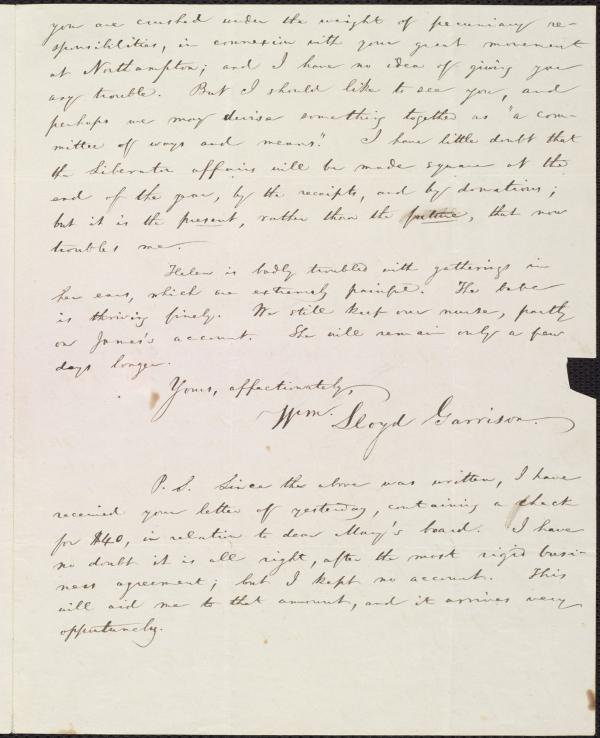 you are crushed under the weight of pecuniary re-
sponsibilities, in connexion with your great movement
at Northampton; and I have no idea of giving you
any trouble. But I should like to see you, and
perhaps we may devise something together as "a com-
mittee of ways and means." I have little doubt that
the Liberator affairs will be made square at the
end of the year, by the receipts, and by donations;
but it is the present, rather than the future, that now
troubles me.
Helen is badly troubled with gatherings in
her ears, which are extremely painful. The babe
is thriving finely. We still keep our nurse, partly
on James's account. She will remain only a few
days longer.
Yours, affectionately,
Wm. Lloyd Garrison.
P. S. Since the above was written, I have
received your letter of yesterday, containing a check
for $40, in relation to dear Mary's board. I have
no doubt it is all right, after the most rigid busi-
ness agreement; but I kept no account. This
will aid me to that amount, and it arrives very
opportunely.